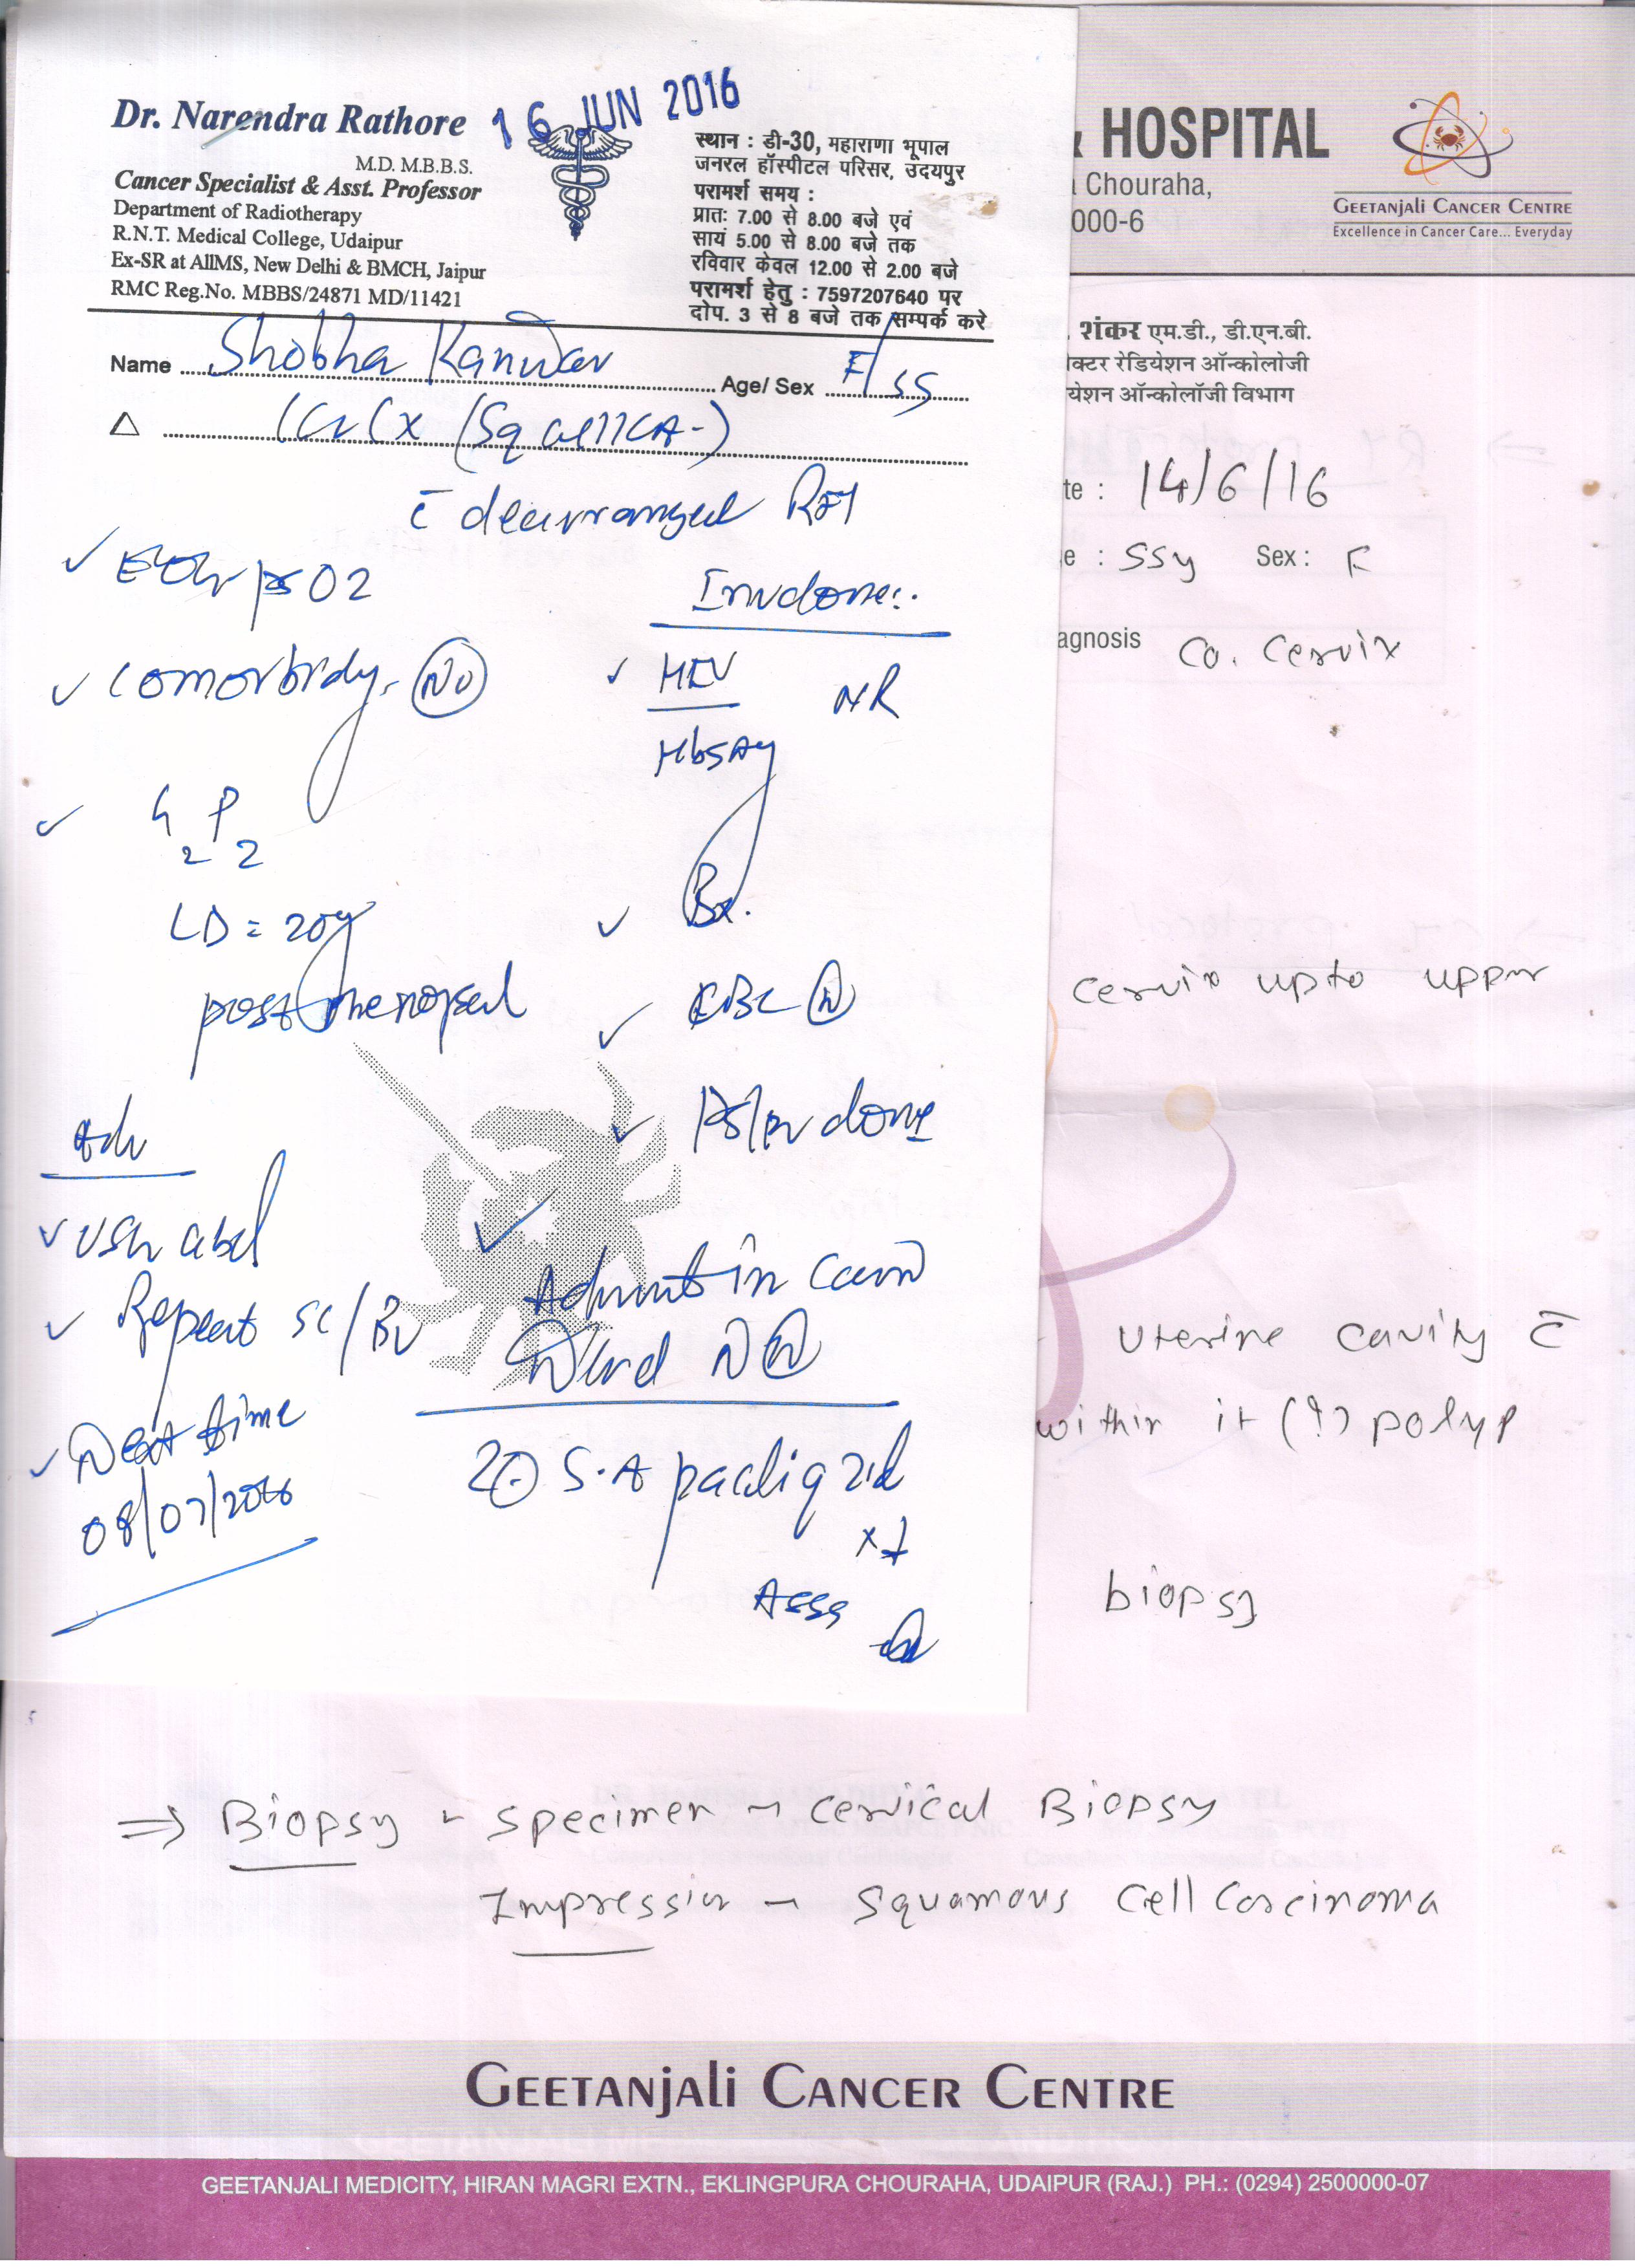 Dr. Narendra Rathore
16 JUN 2016
M.D. M.B.B.S.
Cancer Specialist & Asst. Professor
Department of Radiotherapy
R.N.T. Medical College, Udaipur
Ex-SR at AIIMS, New Delhi & BMCH, Jaipur
RMC Reg.No. MBBS/24871 MD/11421
स्थान : डी-30, महाराणा भूपाल
जनरल हॉस्पीटल परिसर, उदयपुर
परामर्श समय :
प्रातः 7.00 से 8.00 बजे एवं
सायं 5.00 से 8.00 बजे तक
रविवार केवल 12.00 से 2.00 बजे
परामर्श हेतु : 7597207640 पर
दोप. 3 से 8 बजे तक सम्पर्क करे
Name Shobha Kanwar Age/ Sex F/55
Δ Cx (Sq cell CA-)
c̄ RFT
02
Comorbidy. No
G2 P2
LD = 20y
post menopsal
Inv done:.
HIV NR
HbsAg
Bx.
CBC N
done
Adv
USG abd
Repeat sc/
Next time
08/07/2016
Admit in
Ward N
x 1
& HOSPITAL
Chouraha,
000-6
GEETANJALI CANCER CENTRE
Excellence in Cancer Care... Everyday
. शंकर एम.डी., डी.एन.बी.
क्टर रेडियेशन ऑन्कोलोजी
येशन ऑन्कोलॉजी विभाग
te : 14/6/16
e : 55y Sex : F
agnosis Ca. Cervix
cervix upto upper
uterine cavity c̄
within it (?) polyp
biopsy
⇒ Biopsy - specimen - cervical Biopsy
Impression - Squamous Cell Carcinoma
GEETANJALI CANCER CENTRE
GEETANJALI MEDICITY, HIRAN MAGRI EXTN., EKLINGPURA CHOURAHA, UDAIPUR (RAJ.) PH.: (0294) 2500000-07